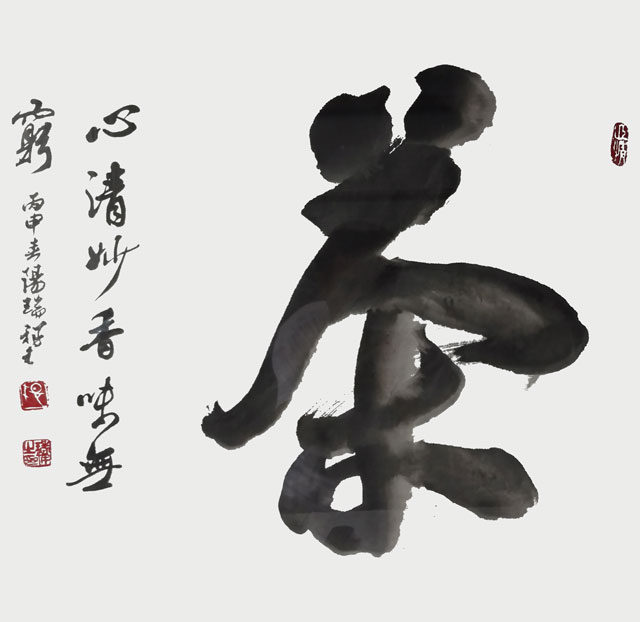 茶
心清妙香味無
窮
丙申春陽瑞